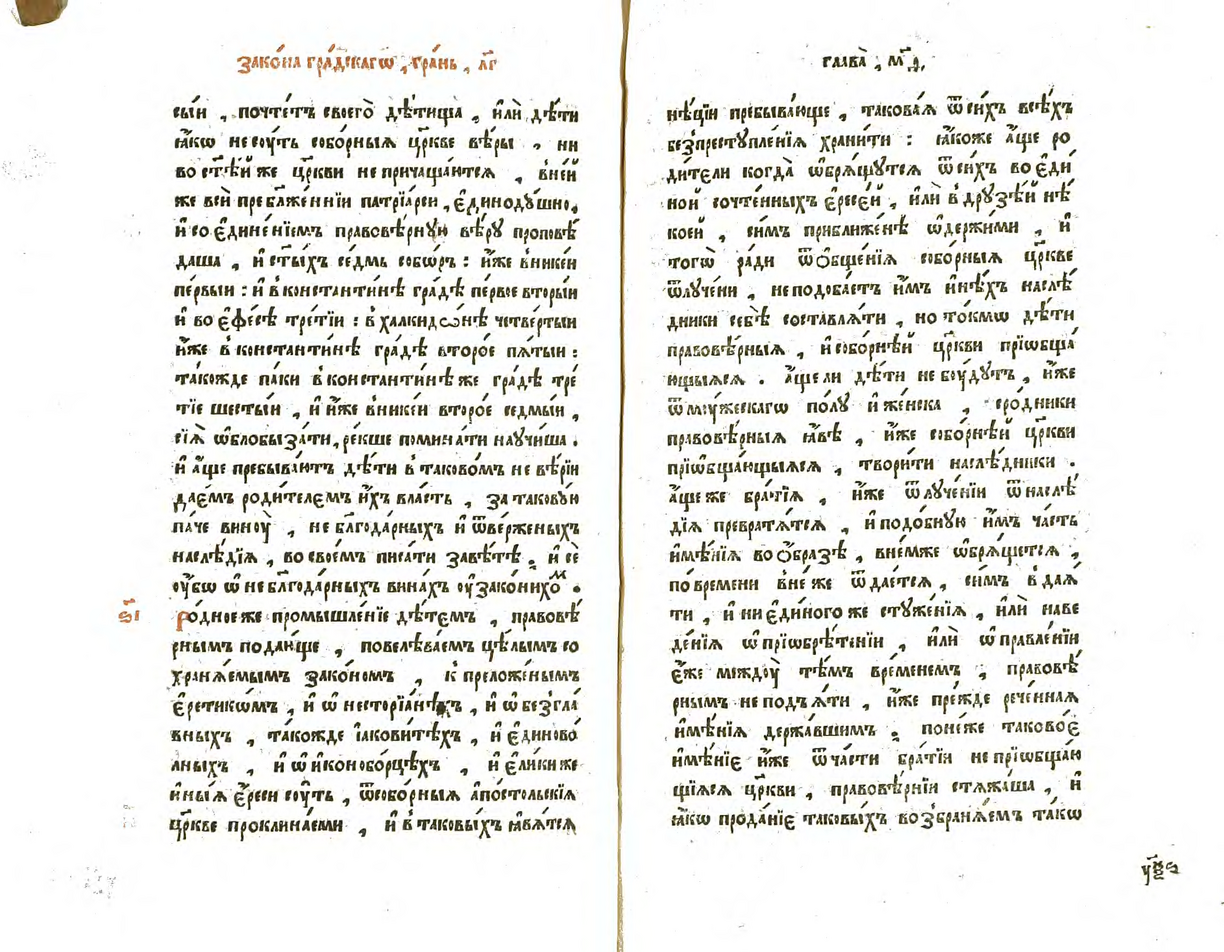 Зако́на гра́дскагѡ , гра́нь , л҃г
сы́и , почте́тъ своего̀ дѣ́тища , и҆лѝ дѣ́ти
ꙗ҆́кѡ несꙋ́ть собо́рныѧ цр҃кве вѣ́ры , ни
во ст҃ѣ́й же цр҃кви не причаща́ютсѧ , вне́й
же всѝ пребл҃же́ннїи патрїа́рси , є҆диноду́шно ,
и҆ со є҆дине́нїемъ правовѣ́рную вѣ́ру проповѣ́
даша , и҆ ст҃ы́хъ се́дмь собѡ́ръ : и҆́же вникѐи
пе́рвыи : и҆ в константи́нѣ гра́дѣ пе́рвое вторы́и
и҆ во є҆фе́сѣ тре́тїи : в халкидо́нѣ четве́ртыи
и҆́же в константи́нѣ гра́дѣ второ́е пѧ́тыи :
та́кожде па́ки в константи́нѣ же гра́дѣ тре́
тїе шесты́и , и҆ и҆́же вникѐи второ́е седмы́и ,
сїѧ̀ ѡ҆блобыза́ти , ре́кше помина́ти научи́ша .
и҆ а҆́ще пребыва́ютъ дѣ́ти в таково́мъ не вѣ́рїи
дае́мъ роди́телємъ и҆́хъ вла́сть , за такову́ю
па́че винꙋ̀ , не бл҃года́рныхъ и҆ ѿве́рженыхъ
наслѣ́дїѧ , во свое́мъ писа́ти завѣ́тѣ . и҆ се
ꙋ҆́бѡ ѡ҆ не бл҃года́рныхъ вина́хъ ꙋ҆зако́нихоⷨ .
ѕ҃і Ро́дное же промышле́нїе дѣ́темъ , правовѣ́
рнымъ пода́юще , повелѣва́емъ цѣ́лымъ со
хранѧ́емымъ зако́номъ , к преложе́нымъ
є҆ретикѡ́мъ , и҆ ѡ҆ несторїа́нѣхъ , и҆ ѡ҆ безгла́
вныхъ , та́кожде і҆акови́тѣхъ , и҆ є҆диново́
лныхъ , и҆ ѡ҆ и҆конобо́рцѣхъ , и҆ є҆ли́ки же
и҆ны́ѧ є҆́реси сꙋ́ть , ѿ собо́рныѧ а҆по́стольскїѧ
цр҃кве проклина́еми , и҆ в таковы́хъ ꙗ҆вѧ́тсѧ
глава̀ , м҃ѳ ,
нѣ́цїи пребыва́юще , такова́ѧ ѿ си́хъ всѣ́хъ
безпреступле́нїѧ храни́ти : ꙗ҆́коже а҆́ще ро
ди́тели когда̀ ѡ҆брѧ́щутсѧ ѿ си́хъ во є҆ди́
ной сочте́нныхъ є҆ресе́й , и҆лѝ в друзѣ́й нѣ́
коей , си́мъ приближе́нѣ ѡ҆держи́ми , и҆
тогѡ̀ ра́ди ѿ ѻ҆бще́нїѧ собо́рныѧ цр҃кве
ѿлу́чени , не подоба́етъ и҆̀мъ и҆нѣ́хъ наслѣ́
дники себѣ̀ составлѧ́ти , но то́кмѡ дѣ́ти
правовѣ́рныѧ , и҆ собо́рнѣй цр҃кви прїѡбща́
ющыѧсѧ . а҆́ще ли дѣ́ти не бꙋ́дутъ , и҆́же
ѿ мꙋ́жескагѡ по́лу и҆ же́нска , сро́дники
правовѣ́рныѧ ꙗ҆́вѣ , и҆́же собо́рнѣй цр҃кви
прїѡбща́ющыѧсѧ , твори́ти наслѣ́дники .
а҆́ще же бра́тїѧ , и҆́же ѿлуче́нїи ѿ наслѣ́
дїѧ превратѧ́тсѧ , и҆ подо́бную и҆̀мъ ча́сть
и҆мѣ́нїѧ во ѻ҆́бразѣ , вне́мже ѡ҆брѧ́щетсѧ ,
по вре́мени вне́ же ѿдае́тсѧ , си́мъ вдаѧ́
ти , и҆ ни є҆ди́ного же стуже́нїѧ , и҆лѝ наве
де́нїѧ ѡ҆ прїѡбрѣ́тенїи , и҆лѝ ѡ҆ правле́нїи
є҆́же междꙋ̀ тѣ́мъ вре́менемъ , правовѣ́
рнымъ не подъѧ́ти , и҆́же пре́жде рече́ннаѧ
и҆мѣ́нїѧ держа́вшимъ . поне́же таково́е
и҆мѣ́нїе и҆́же ѿ ча́сти бра́тїи не прїѡбща́ю
щїѧсѧ цр҃кви , правовѣ́рнїи стѧжа́ша , и҆
ꙗ҆́кѡ прода́нїе таковы́хъ возбранѧ́емъ та́кѡ